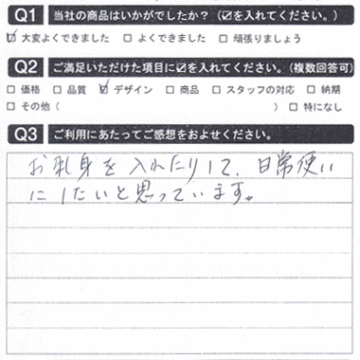 Q1 当社の商品はいかがでしたか？（☑を入れてください。）
☑ 大変よくできました □ よくできました □ 頑張りましょう
Q2 ご満足いただけた項目に☑を入れてください。（複数回答可）
□ 価格 □ 品質 ☑ デザイン □ 商品 □ スタッフの対応 □ 納期
□ その他（ ） □ 特になし
Q3 ご利用にあたってご感想をおよせください。
お刺身を入れたりして、日常使い
にしたいと思っています。